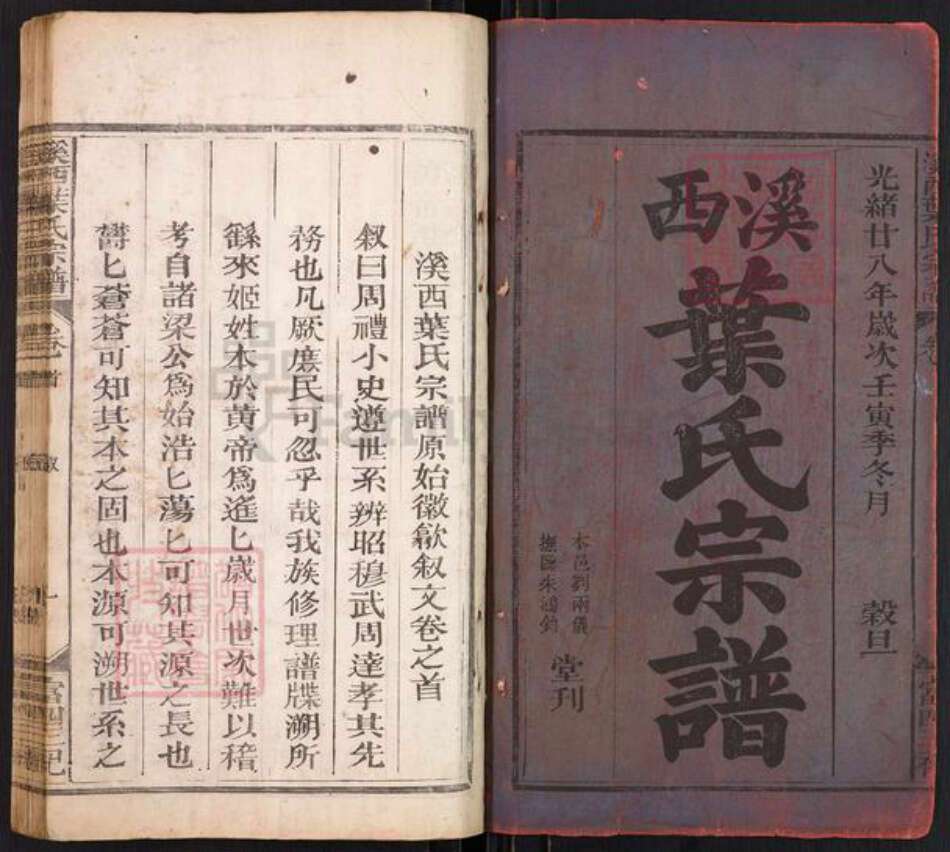 光緒廿八年歲次壬寅季冬月 穀旦
溪西
葉氏宗譜
本邑劉兩儀
撫臨朱鴻鈞
堂刊
溪西葉氏宗譜原始徽歙叙文卷之首
叙曰周禮小史遵世系辨昭穆武周達孝其先
務也凡厥庶民可忽乎哉我族修理譜牒溯所
繇來姬姓本於黄帝爲遙匕歲月世次難以稽
考自諸梁公爲始浩匕蕩匕可知其源之長也
欝匕蒼蒼可知其本之固也本源可溯世系之
溪西葉氏宗譜 卷之首 叙 一